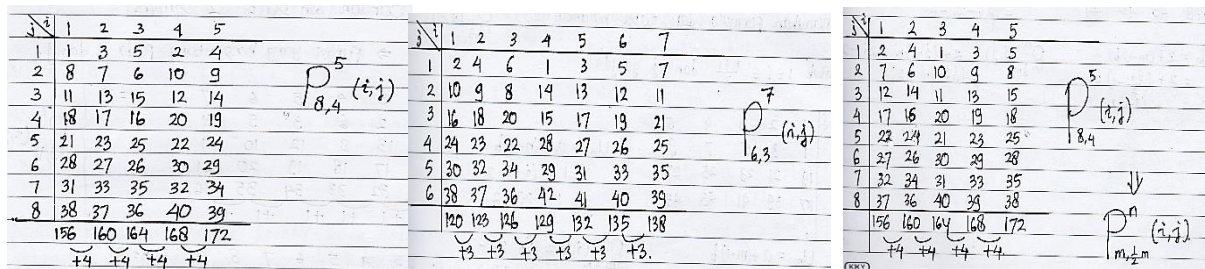 j\i 1 2 3 4 5
1 1 3 5 2 4
2 8 7 6 10 9
3 11 13 15 12 14
4 18 17 16 20 19
5 21 23 25 22 24
6 28 27 26 30 29
7 31 33 35 32 34
8 38 37 36 40 39
156 160 164 168 172
+4 +4 +4 +4
P⁵₈,₄ (i,j)
j\i 1 2 3 4 5 6 7
1 2 4 6 1 3 5 7
2 10 9 8 14 13 12 11
3 16 18 20 15 17 19 21
4 24 23 22 28 27 26 25
5 30 32 34 29 31 33 35
6 38 37 36 42 41 40 39
120 123 126 129 132 135 138
+3 +3 +3 +3 +3 +3.
P⁷₆,₃ (i,j)
j\i 1 2 3 4 5
1 2 4 1 3 5
2 7 6 10 9 8
3 12 14 11 13 15
4 17 16 20 19 18
5 22 24 21 23 25
6 27 26 30 29 28
7 32 34 31 33 35
8 37 36 40 39 38
156 160 164 168 172
+4 +4 +4 +4
P⁵₈,₄ (i,j)
⇓
Pⁿ m,½m (i,j)
KKY